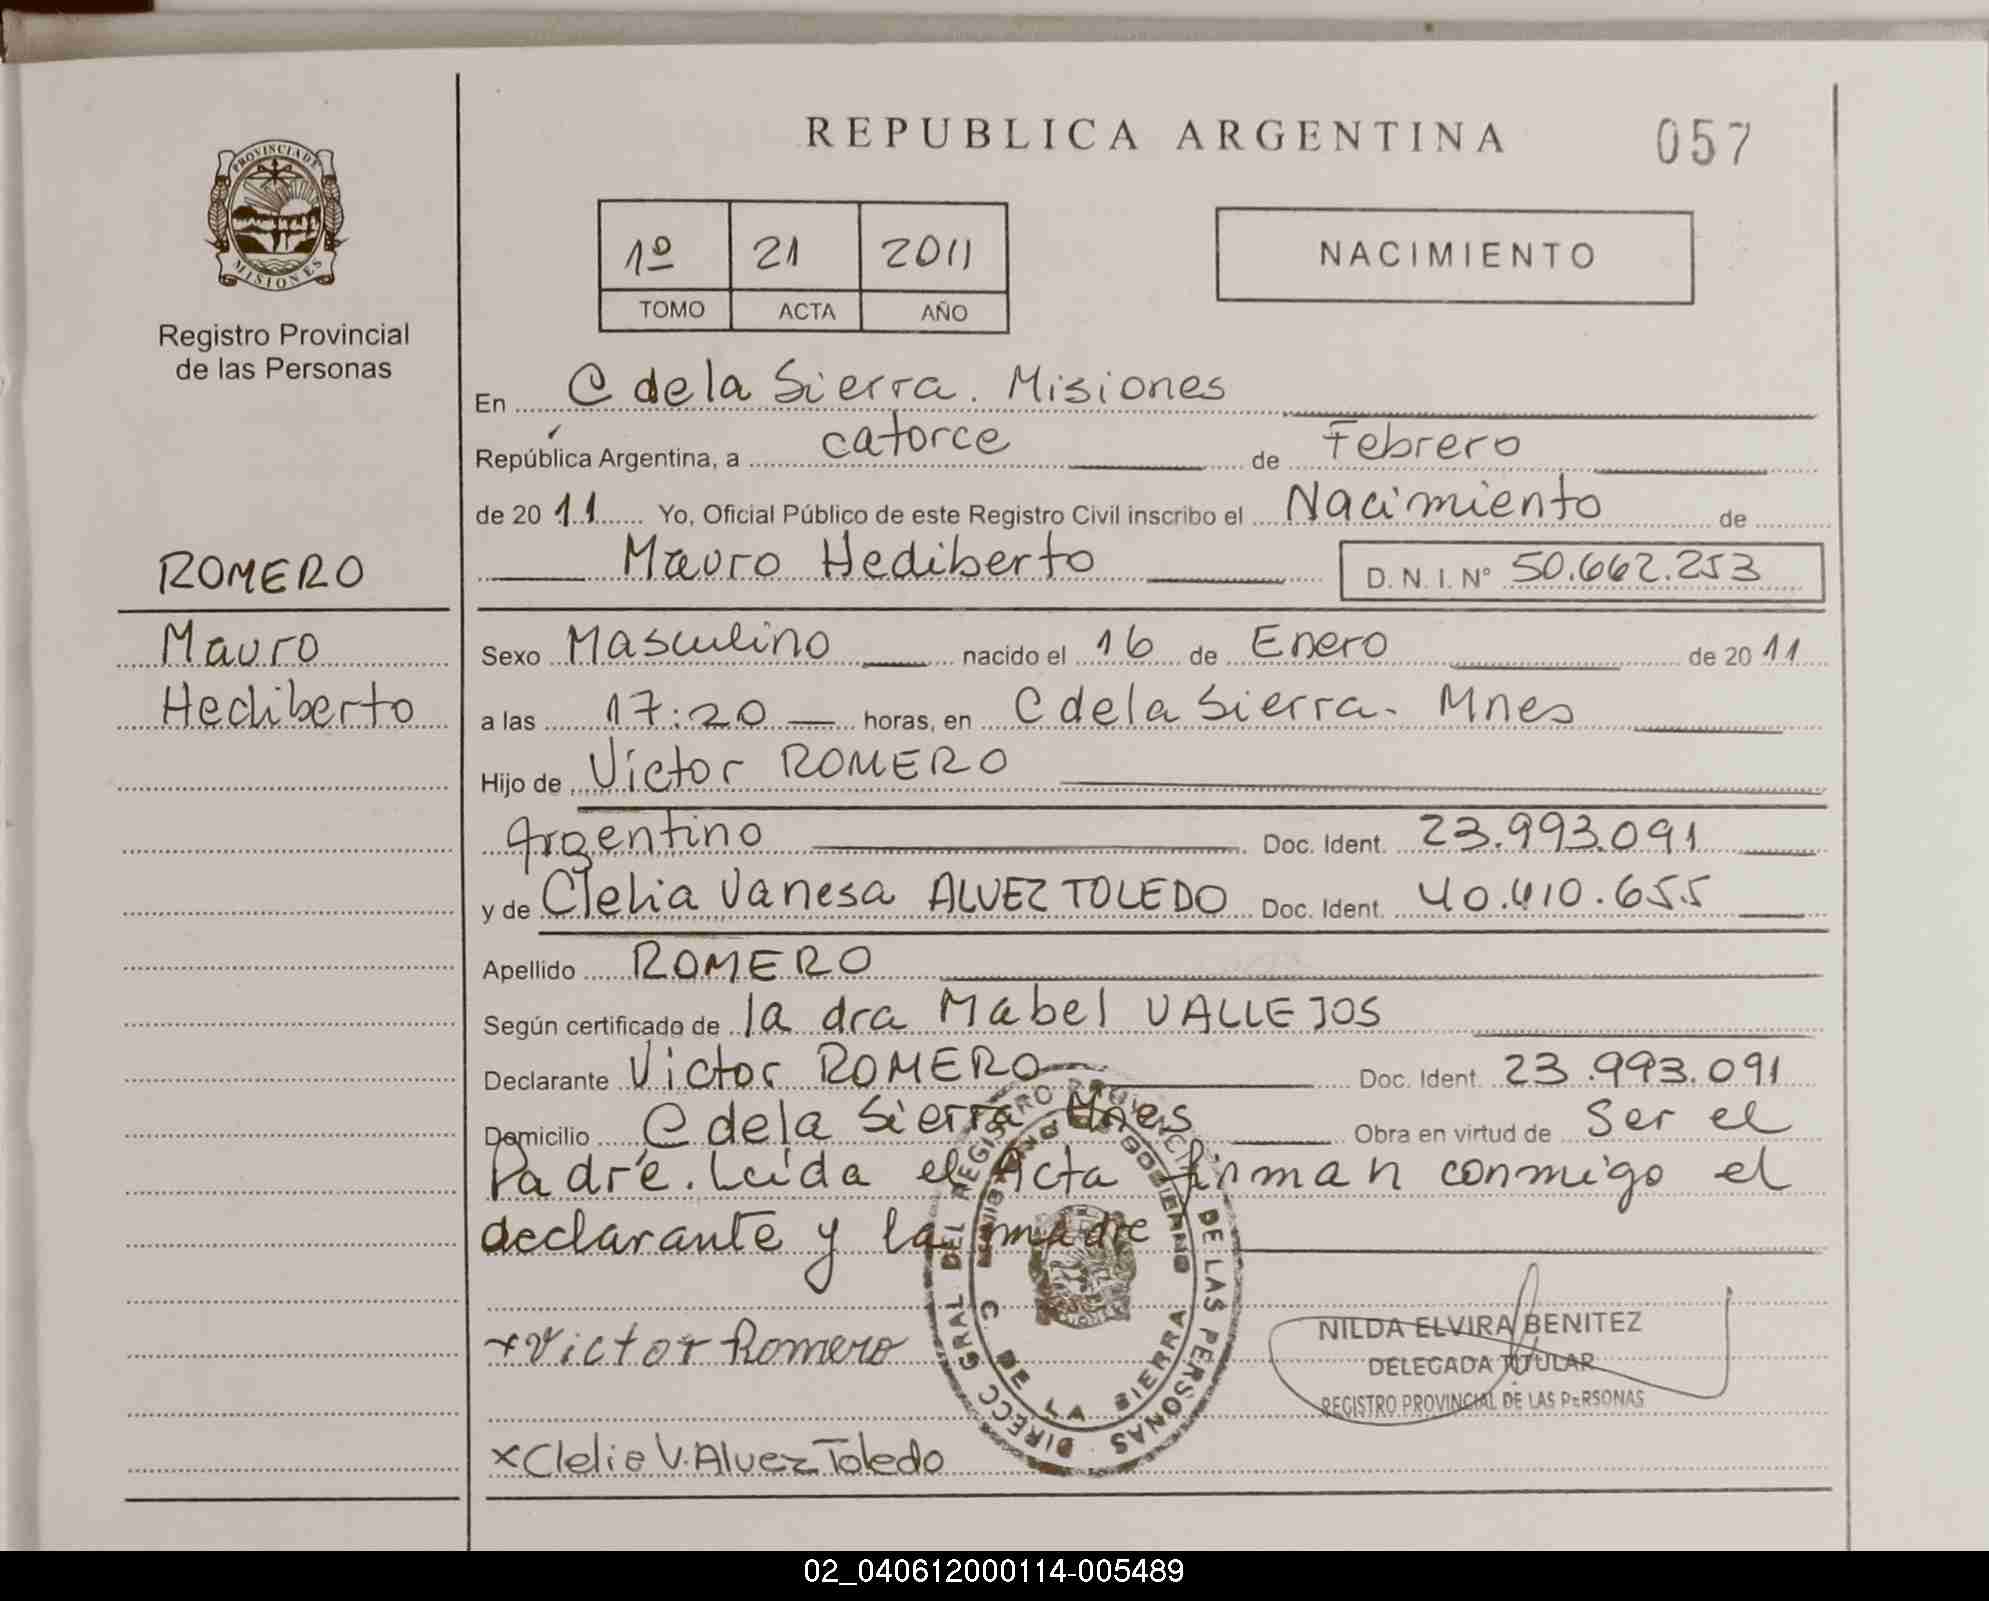 REPUBLICA ARGENTINA
057
PROVINCIA DE
MISIONES
Registro Provincial
de las Personas
1º 21 2011
TOMO ACTA AÑO
NACIMIENTO
En C de la Sierra. Misiones
República Argentina, a catorce de Febrero
de 20 11 Yo, Oficial Público de este Registro Civil inscribo el Nacimiento de
Mauro Hediberto D. N. I. Nº 50.662.253
ROMERO
Mauro
Hediberto
Sexo Masculino nacido el 16 de Enero de 20 11
a las 17:20 horas, en C de la Sierra. Mnes
Hijo de Victor ROMERO
Argentino Doc. Ident. 23.993.091
y de Clelia Vanesa ALVEZ TOLEDO Doc. Ident. 40.410.655
Apellido ROMERO
Según certificado de la dra Mabel VALLEJOS
Declarante Victor ROMERO Doc. Ident. 23.993.091
Domicilio C de la Sierra Mnes Obra en virtud de Ser el
Padre. Leida el Acta firman conmigo el
declarante y la madre
DIRECC GRAL DEL REGISTRO PROVINCIAL DE LAS PERSONAS
MINISTERIO DE GOBIERNO
C. DE LA SIERRA
x Victor Romero
NILDA ELVIRA BENITEZ
DELEGADA TITULAR
REGISTRO PROVINCIAL DE LAS PERSONAS
x Clelia V. Alvez Toledo
02_040612000114-005489